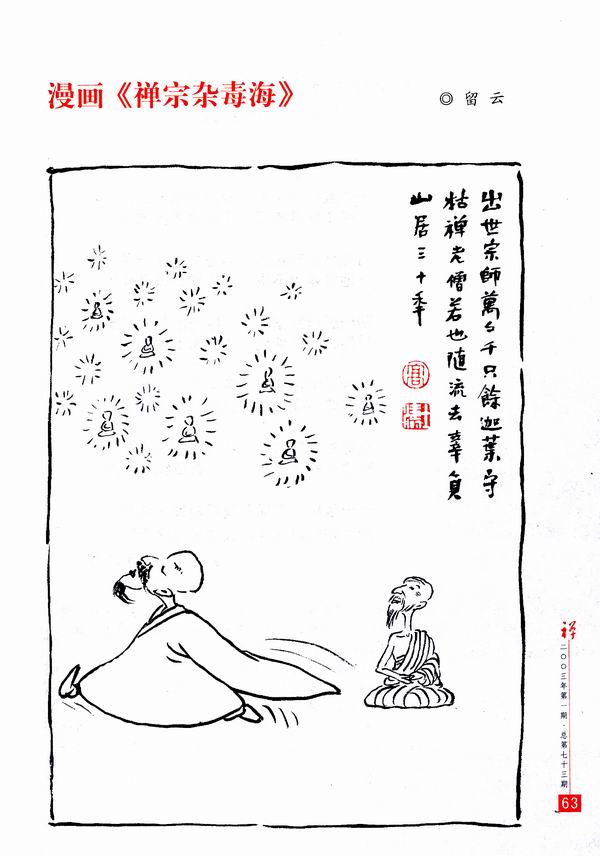 漫画《禅宗杂毒海》
◎ 留 云
出世宗師萬々千只餘迦葉守
枯禅老僧若也隨流去辜負
山居三十年
禅
二〇〇三年第一期·总第七十三期
63